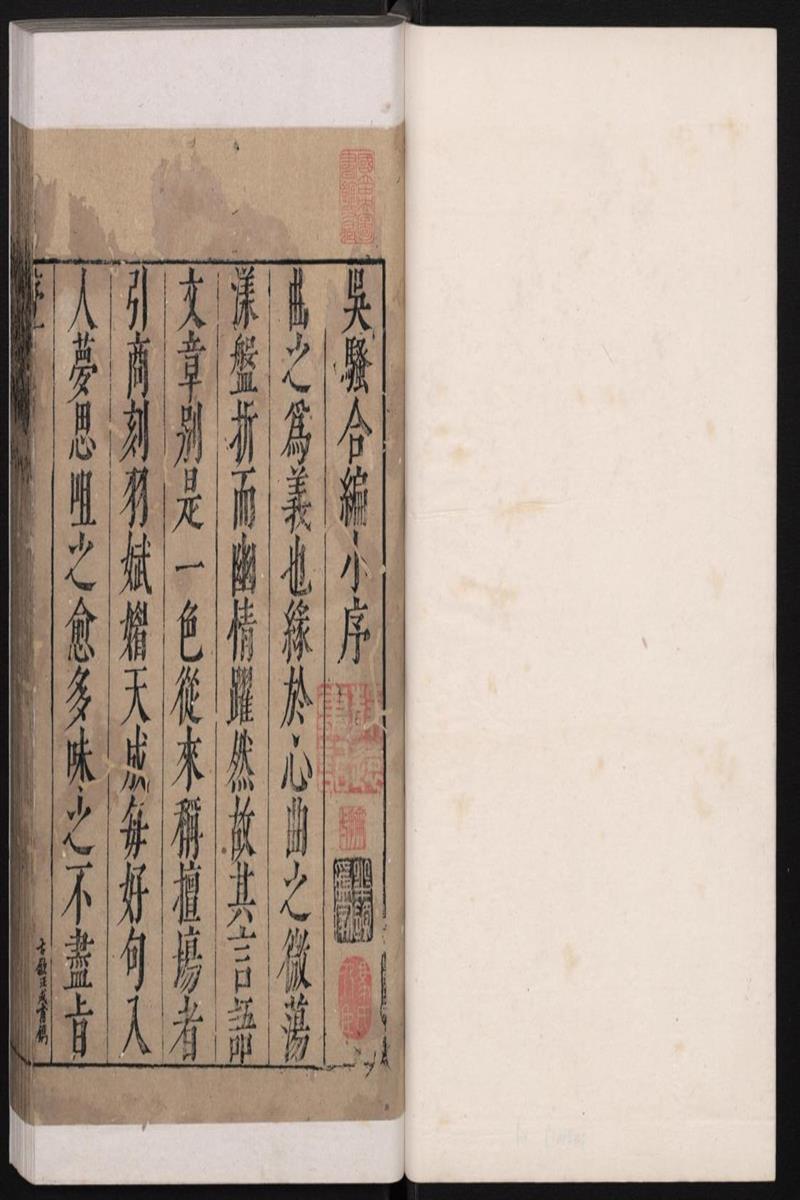 吳騷合編小序
曲之爲義也緣於心曲之微蕩
漾盤折而幽情躍然故其言語
文章別是一色從來稱擅塲者
引商刻羽斌媚天成每好句入
人夢思咀之愈多味之不盡旨
古歙汪成甫鐫